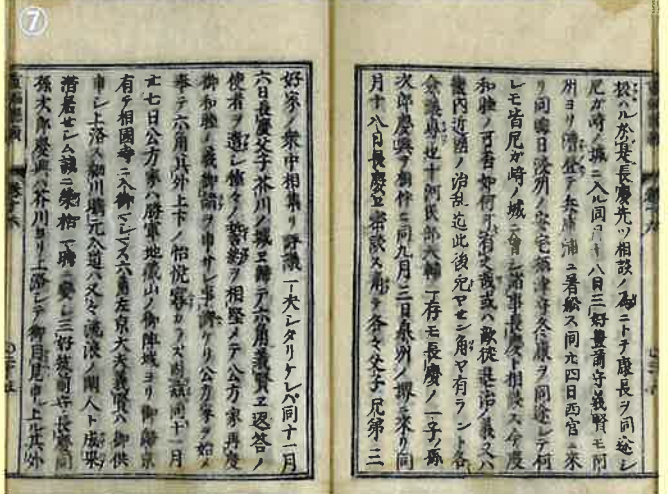 ⑦
松ハル於是長慶先ツ相談ノ為ニトテ康長ヲ同途シ
尼ガ時ノ城ニ入ル同月十八日三好豊前守義賢モ阿
州ヨリ漕登テ兵庫浦ニ着船ス同廿四日西宮ニ来
リ同晦日淡州ノ安宅摂津守冬康ヲ同途シテ何
レモ皆尼ガ時ノ城ニ會シ諸事長慶ト相談ス今度
和睦ノ可否如何可有之哉或ハ敵徒退治ノ義又ハ
畿内近國ノ治乱迄此後死ヤセン角ヤ有ラント各
僉議専也十河民部大輔一存モ長慶ノ一子ノ孫
次郎慶興ヲ相伴ニ同九月二日泉州ノ堺ニ来リ同
月十八日長慶ニ密談ス角テ各々父子兄弟三
好家ノ衆中相集リ評議一夬シタリケレバ同十一月
六日長慶父子芥川ノ城ヱ歸テ六角義賢ヱ返答ノ
使者ヲ遣シ慥々ノ誓約ヲ相堅メテ公方家再度
御和睦ノ義御請ヲ申サレ事調ケレバ公方家ヲ始メ
奉テ六角其外上下ノ怡悦容カラス同月
廿七日公方家ハ勝軍地蔵山ノ御陣城ヨリ御歸京
有テ相國寺ニ入御シマシマス六角左京大夫義賢ハ御供
申シ上洛ス細川晴元公道ハ又々流浪ノ閑人ト成果
潜居セシム誠ニ榮枯一時ニ變シ三好筑前守長慶同
孫次郎慶興ハ芥川ヨリ上洛シテ御目見申シ上ル其外